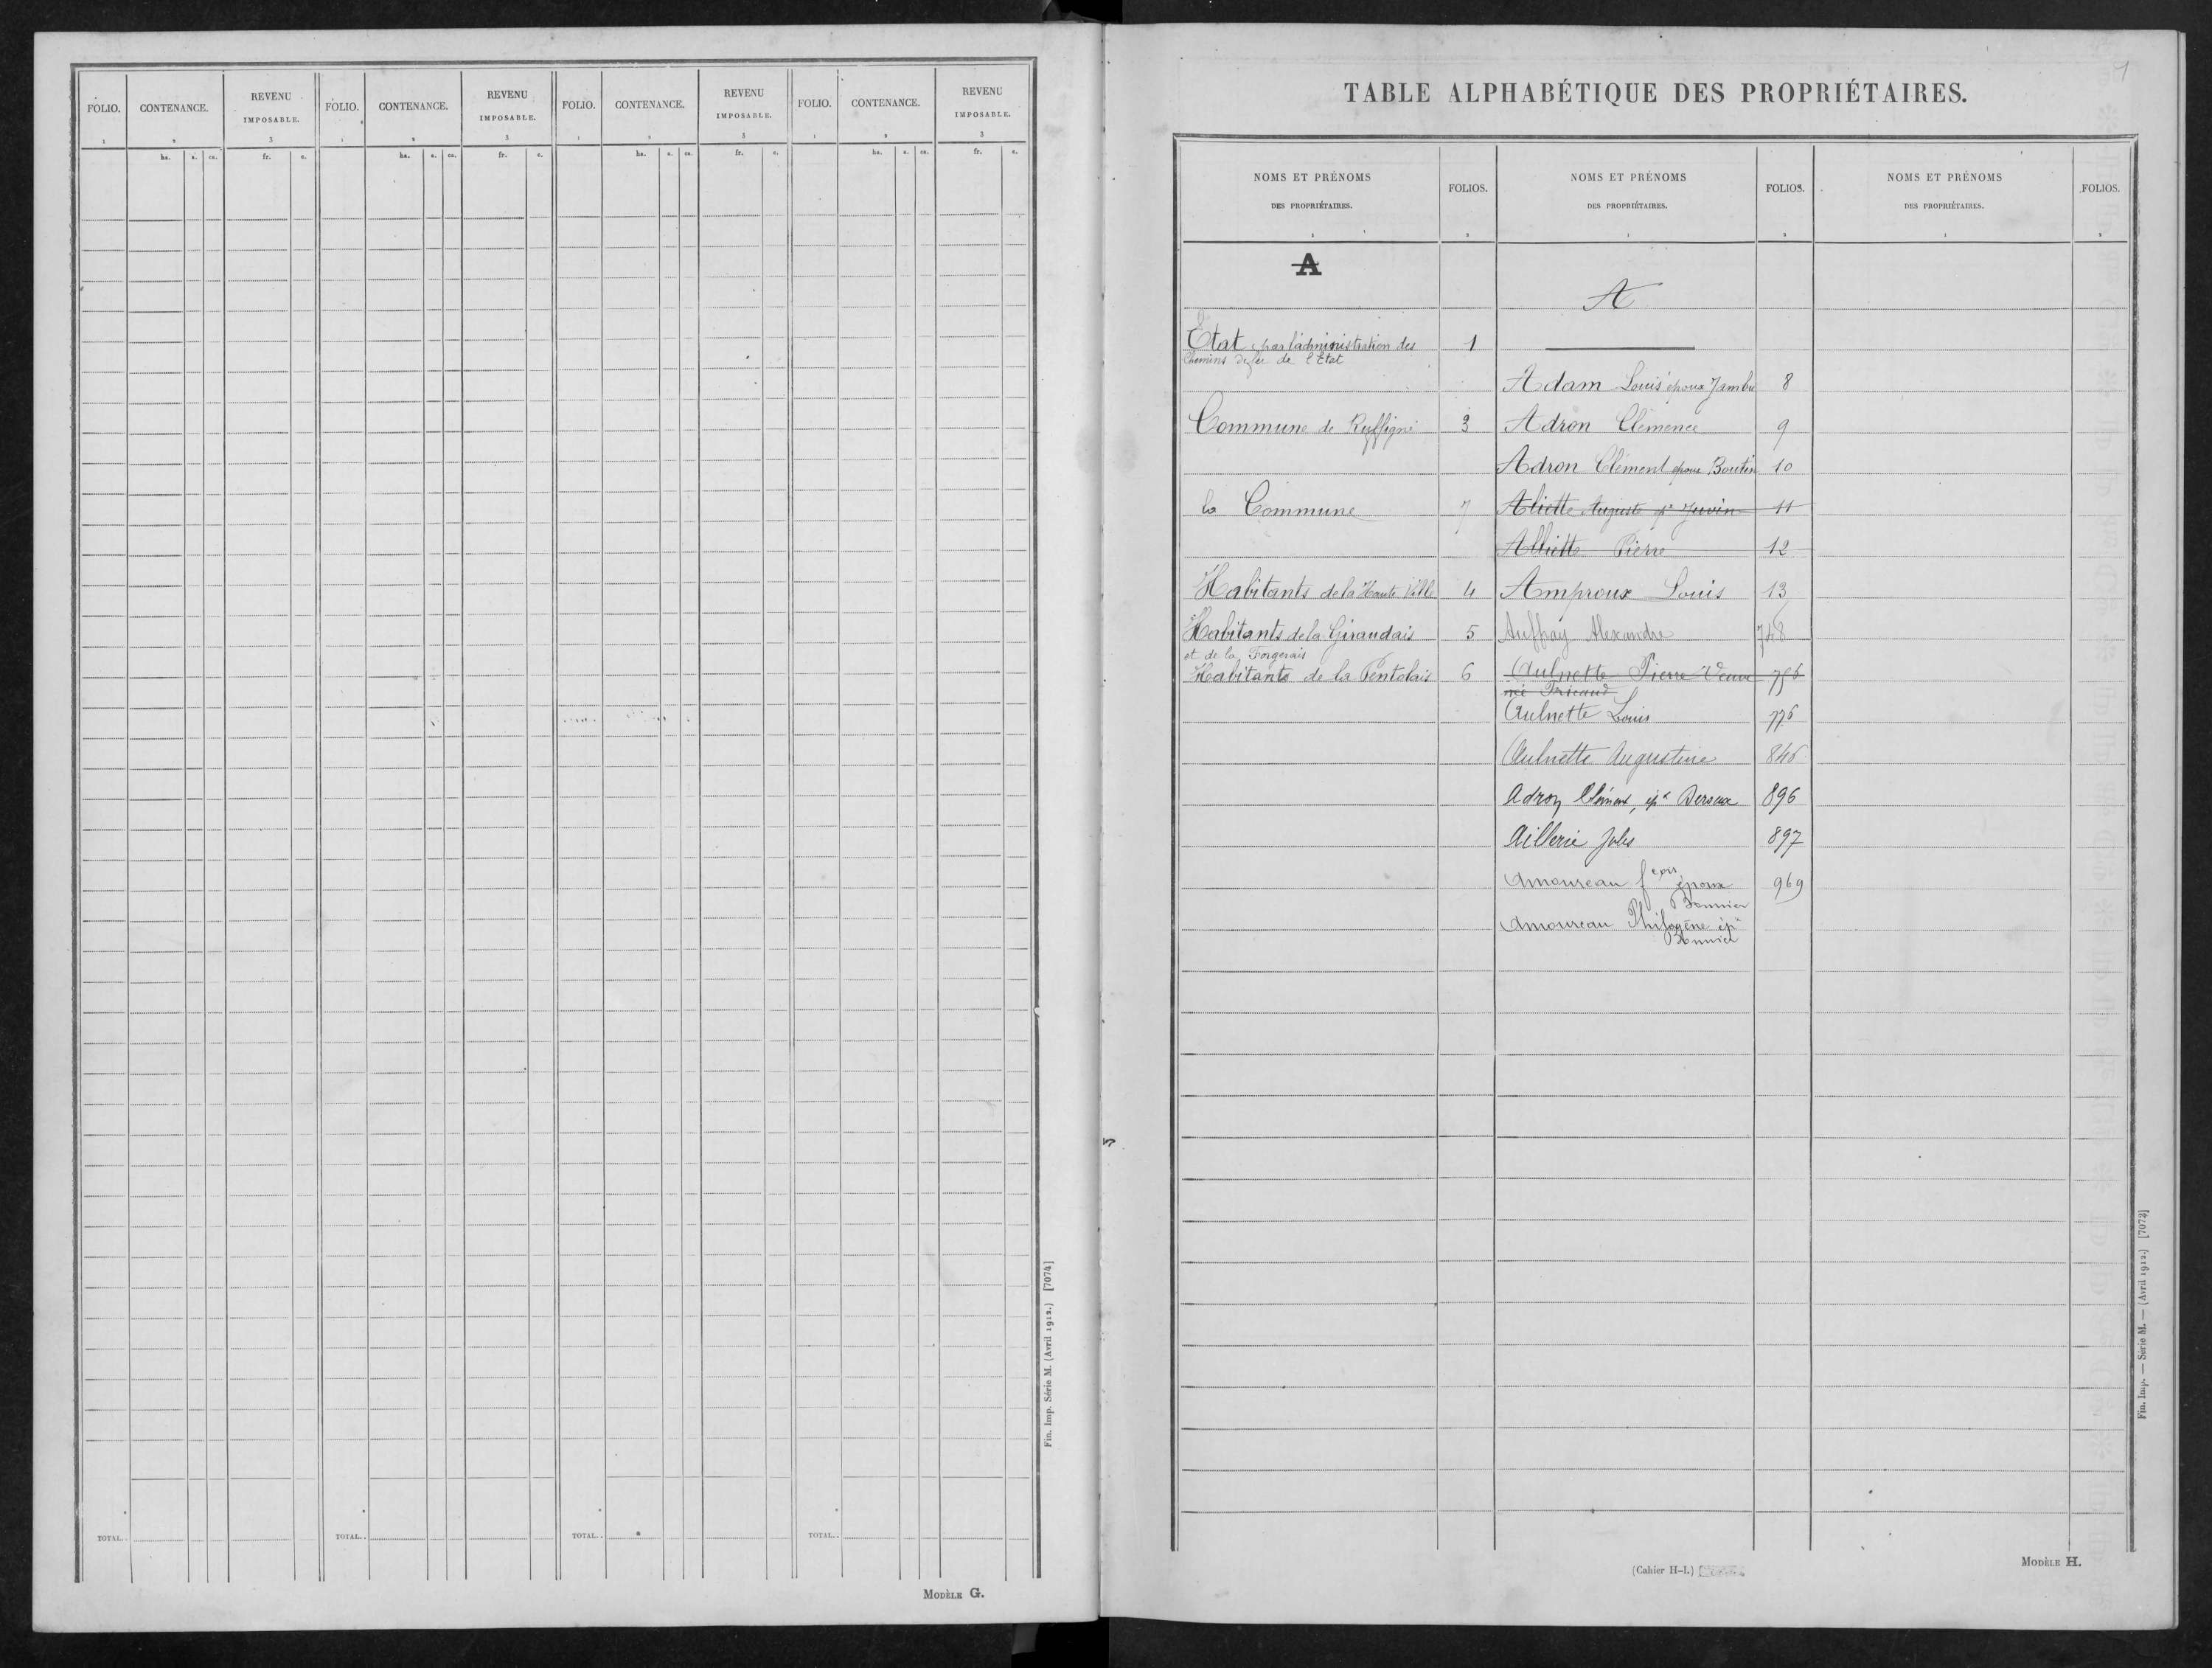 FOLIO. CONTENANCE. REVENU IMPOSABLE. FOLIO. CONTENANCE. REVENU IMPOSABLE. FOLIO. CONTENANCE. REVENU IMPOSABLE. FOLIO. CONTENANCE. REVENU IMPOSABLE.
1 2 3 1 2 3 1 2 3 1 2 3
ha. a. ca. fr. c. ha. a. ca. fr. c. ha. a. ca. fr. c. ha. a. ca. fr. c.
TOTAL.. TOTAL.. TOTAL.. TOTAL..
Fin. Imp. Série M. (Avril 1912.) [7074]
MODÈLE G.
1
TABLE ALPHABÉTIQUE DES PROPRIÉTAIRES.
NOMS ET PRÉNOMS DES PROPRIÉTAIRES. FOLIOS. NOMS ET PRÉNOMS DES PROPRIÉTAIRES. FOLIOS. NOMS ET PRÉNOMS DES PROPRIÉTAIRES. FOLIOS.
1 2 1 2 1 2
A
Etat par l'administration des 1
Chemins de fer de l'Etat
Commune de Ruffigné 3
la Commune 7
Habitants de la Haute Ville 4
Habitants de la Giraudais 5
et de la Forgerais
Habitants de la Pentelais 6
A
Adam Louis époux Jambu 8
Adron Clémence 9
Adron Clément époux Boutin 10
Aliette Auguste ép Juvin 11
Alliette Pierre 12
Amproux Louis 13
Auffray Alexandre 748
Aulnette Pierre Veuve 756
née Tricaud
Aulnette Louis 776
Aulnette Augustine 846
Adron Clément, épx Derseux 896
Aillerie Jules 897
Amoureau fcois époux 969
Bonnier
Amoureau Philogène épx
Bonnier
Fin. Imp. — Série M. — (Avril 1912.) [7072]
(Cahier H-1.)
MODÈLE H.